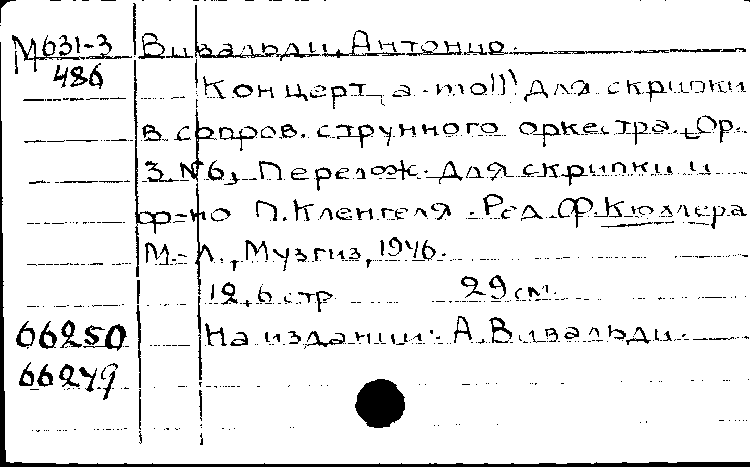 М631-3 Вивальди, Антонио.
486 Концерт „a-moll" для скрипки
в сопров. струнного оркестра. [Op.
3 №6], Перелож. для скрипки и
ф-но П. Кленгеля. Ред. Ф. Кюхлера
М.-Л., Музгиз, 1946.
12, 6 стр 29 см.
66250 На издании: А. Вивальди.
66249